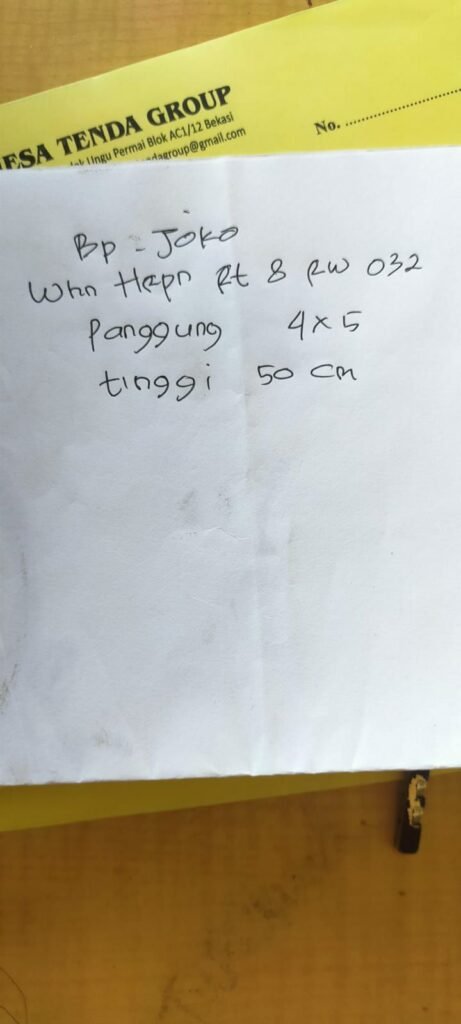 ESA TENDA GROUP
Ungu Permai Blok AC1/12 Bekasi
ndagroup@gmail.com
No. ........................
Bp - Joko
Rt 8 RW 032
Panggung 4 x 5
tinggi 50 cm